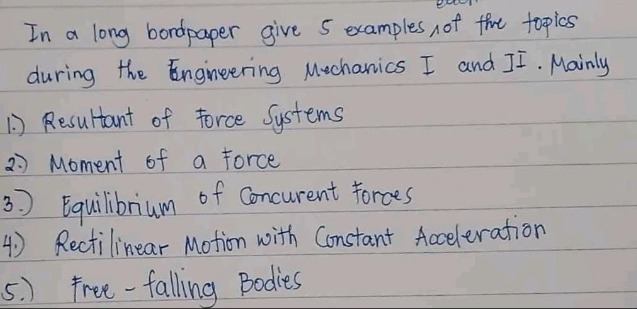 In a long bondpaper give 5 examples each of the topics
during the Engineering Mechanics I and II. Mainly
1.) Resultant of Force Systems
2.) Moment of a Force
3.) Equilibrium of Concurent Forces
4.) Rectilinear Motion with Constant Acceleration
5.) Free-falling Bodies